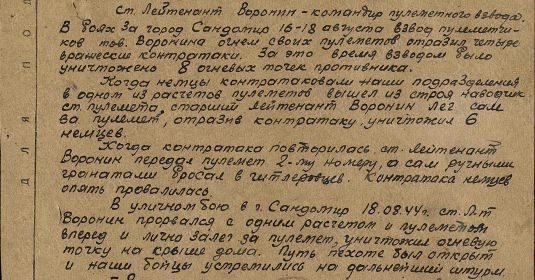 ст. Лейтенант Воронин - командир пулеметного взвода.
В боях за город Сандомир 16-18 августа взвод пулеметчи-
ков тов. Воронина огнем своих пулеметов отразил четыре
вражеские контратаки. За это время взводом было
уничтожено 8 огневых точек противника.
Когда немцы контратаковали наши подразделения
в одном из расчетов пулеметов вышел из строя наводчик
ст. пулемета, старший лейтенант Воронин лег сам
за пулемет, отразив контратаку, уничтожил 6
немцев.
Когда контратака повторилась, ст. лейтенант
Воронин передал пулемет 2-му номеру, а сам ручными
гранатами бросал в гитлеровцев. Контратака немцев
опять провалилась.
В уличном бою в г. Сандомир 18.08.44г. ст. Л-т
Воронин прорвался с одним расчетом и пулеметом
вперед и лично залег за пулемет, уничтожил огневую
точку на крыше дома. Путь пехоте был открыт
и наши бойцы устремились на дальнейший штурм
Д Л Я П О